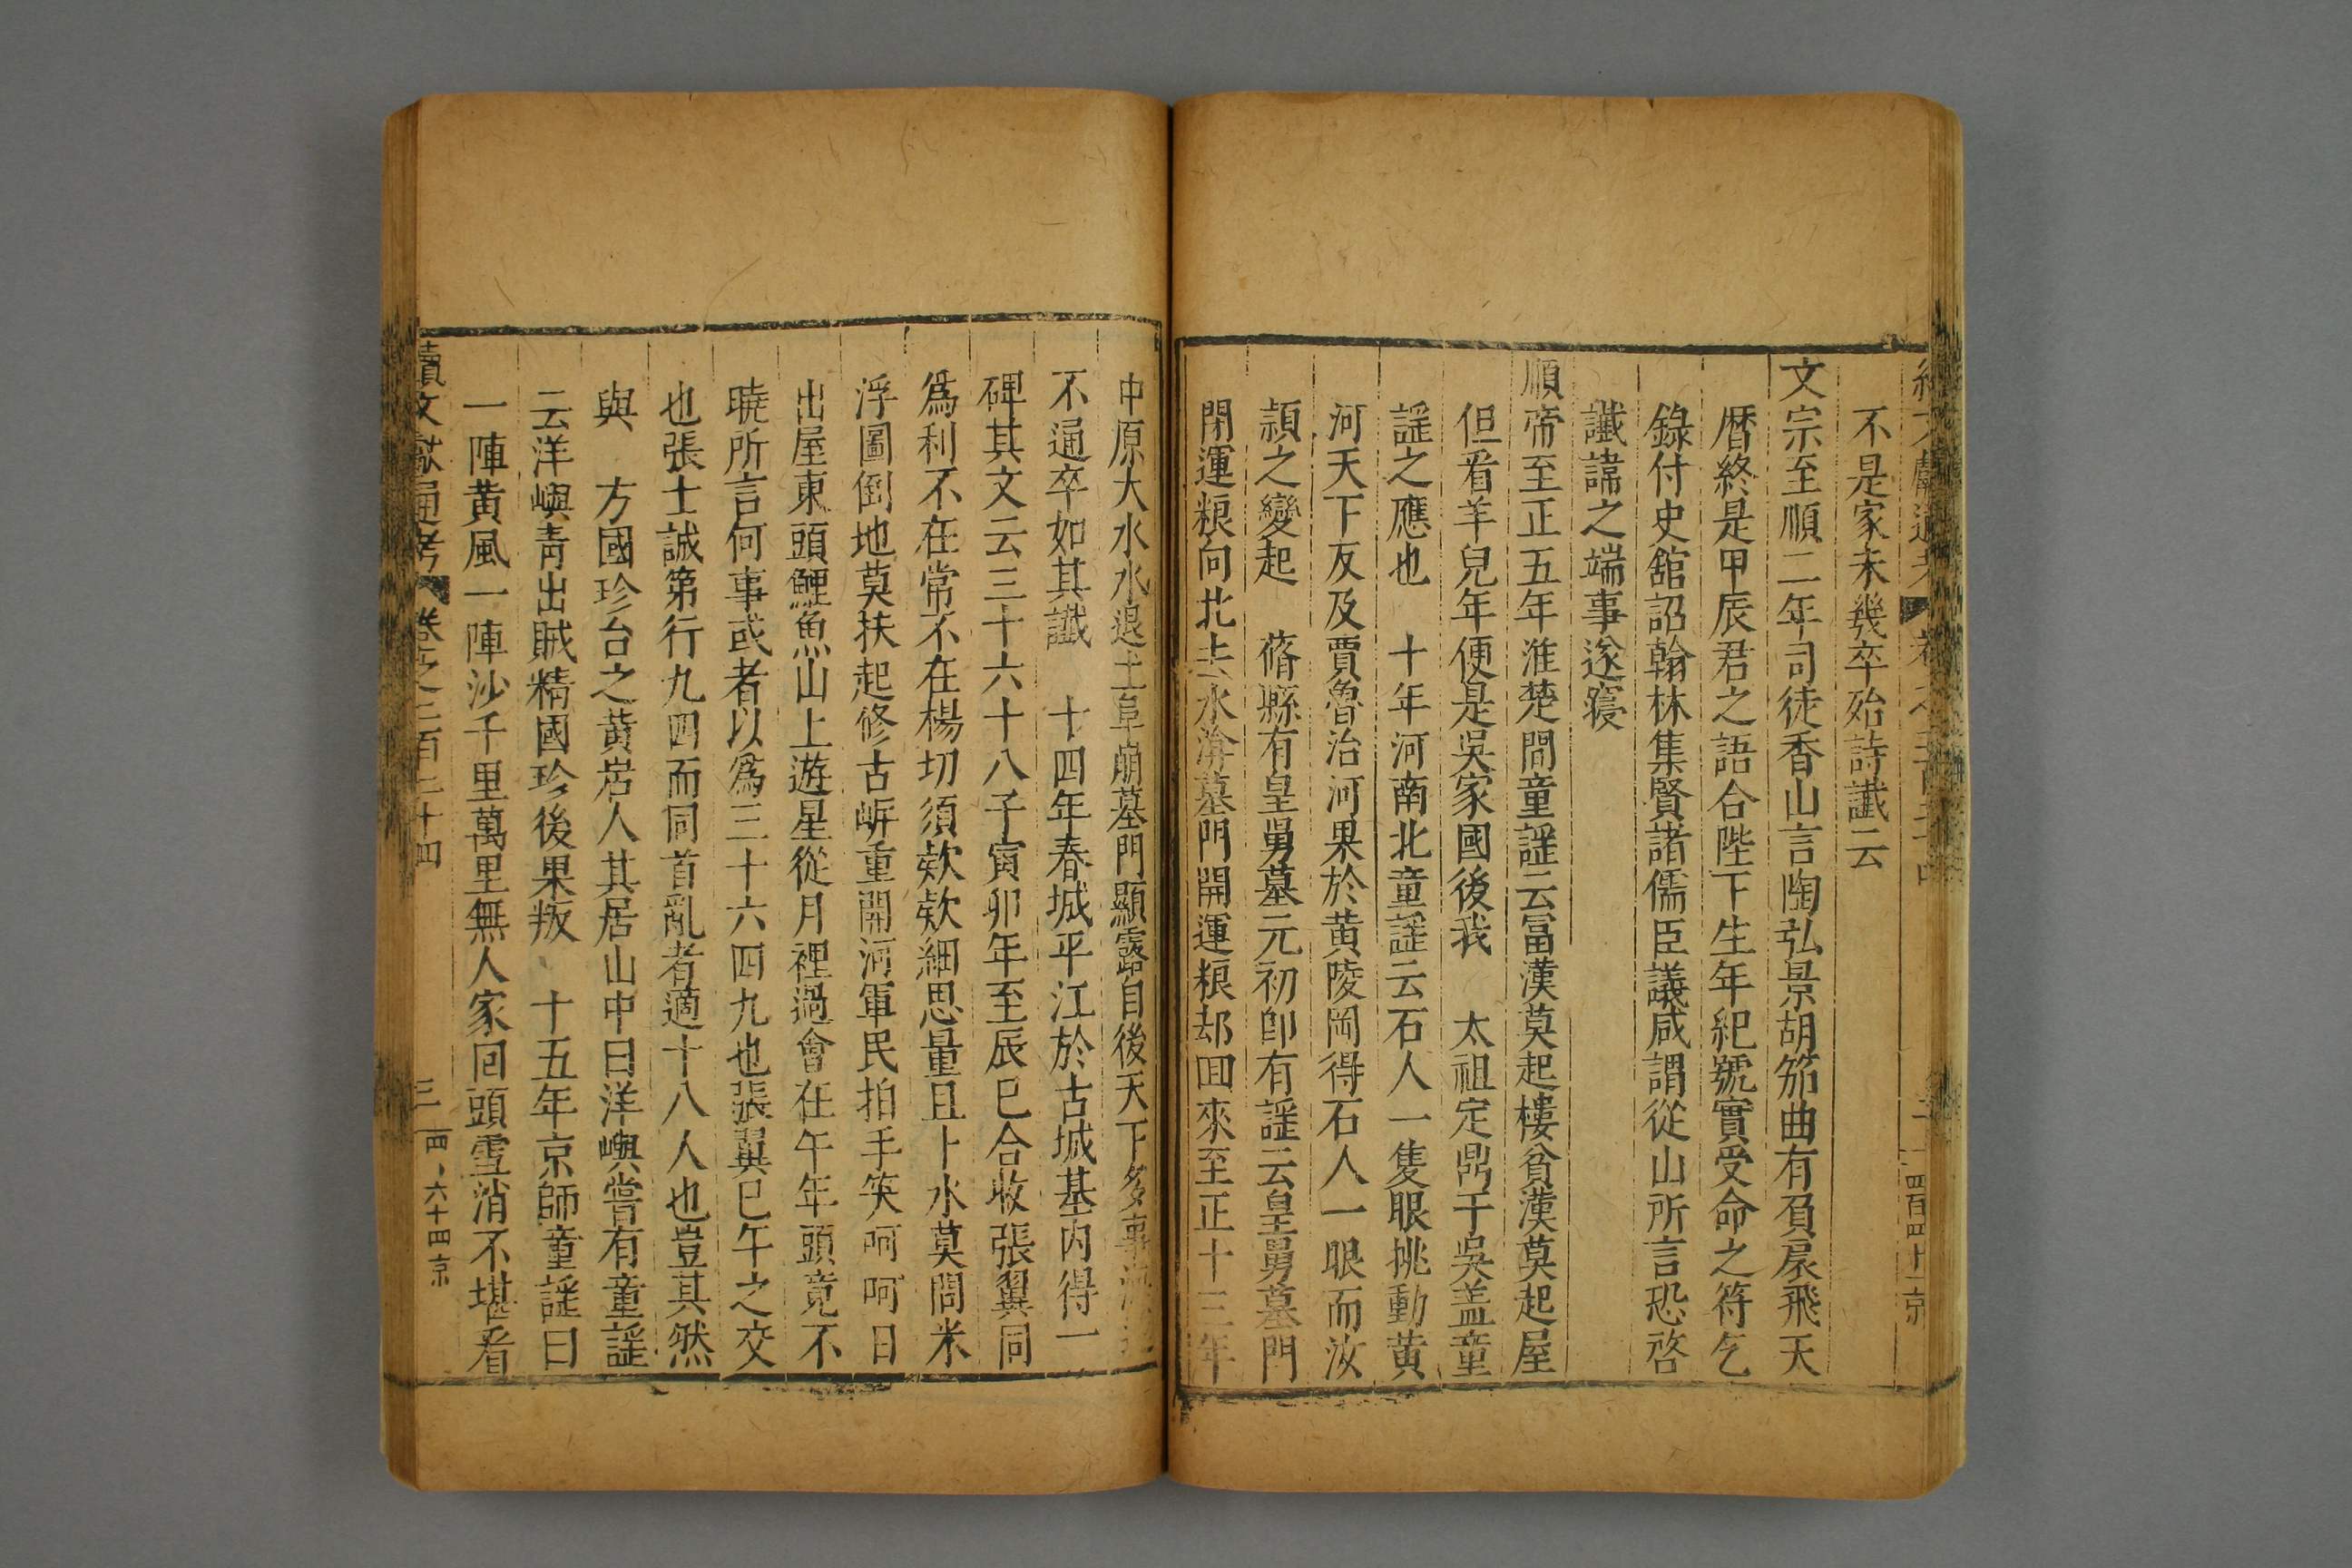 不是家未幾卒殆詩讖云
文宗至順二年司徒香山言陶弘景胡笳曲有負扆飛天
曆終是甲辰君之語合陛下生年紀號實受命之符乞
錄付史舘詔翰林集賢諸儒臣議咸謂從山所言恐啓
讖諱之端事遂寢
順帝至正五年淮楚間童謡云冨漢莫起樓貧漢莫起屋
但看羊兒年便是吳家國後我　太祖定鼎于吳盖童
謡之應也　十年河南北童謡云石人一隻眼挑動黄
河天下反及賈魯治河果於黄陵岡得石人一眼而汝
頴之變起　脩縣有皇舅墓元初卽有謡云皇舅墓門
閉運粮向北去水淪墓門開運粮却囬來至正十三年
中原大水水退土阜崩墓門顯露自後天下多事
不通卒如其讖　十四年春城平江於古城基内得一
碑其文云三十六十八子寅卯年至辰巳合收張翼同
爲利不在常不在楊切須欵欵細思量且卜水莫問米
浮圖倒地莫扶起修古岍重開河軍民拍手笑呵呵日
出屋東頭鯉魚山上遊星從月裡過會在午年頭竟不
曉所言何事或者以爲三十六四九也張翼巳午之交
也張士誠第行九四而同首亂者適十八人也豈其然
與　方國珍台之黄岩人其居山中曰洋嶼嘗有童謡
云洋嶼青出賊精國珍後果叛　十五年京師童謡曰
一陣黄風一陣沙千里萬里無人家囘頭雪消不堪看
續文獻通考　卷之二百二十四　三　四六十四京